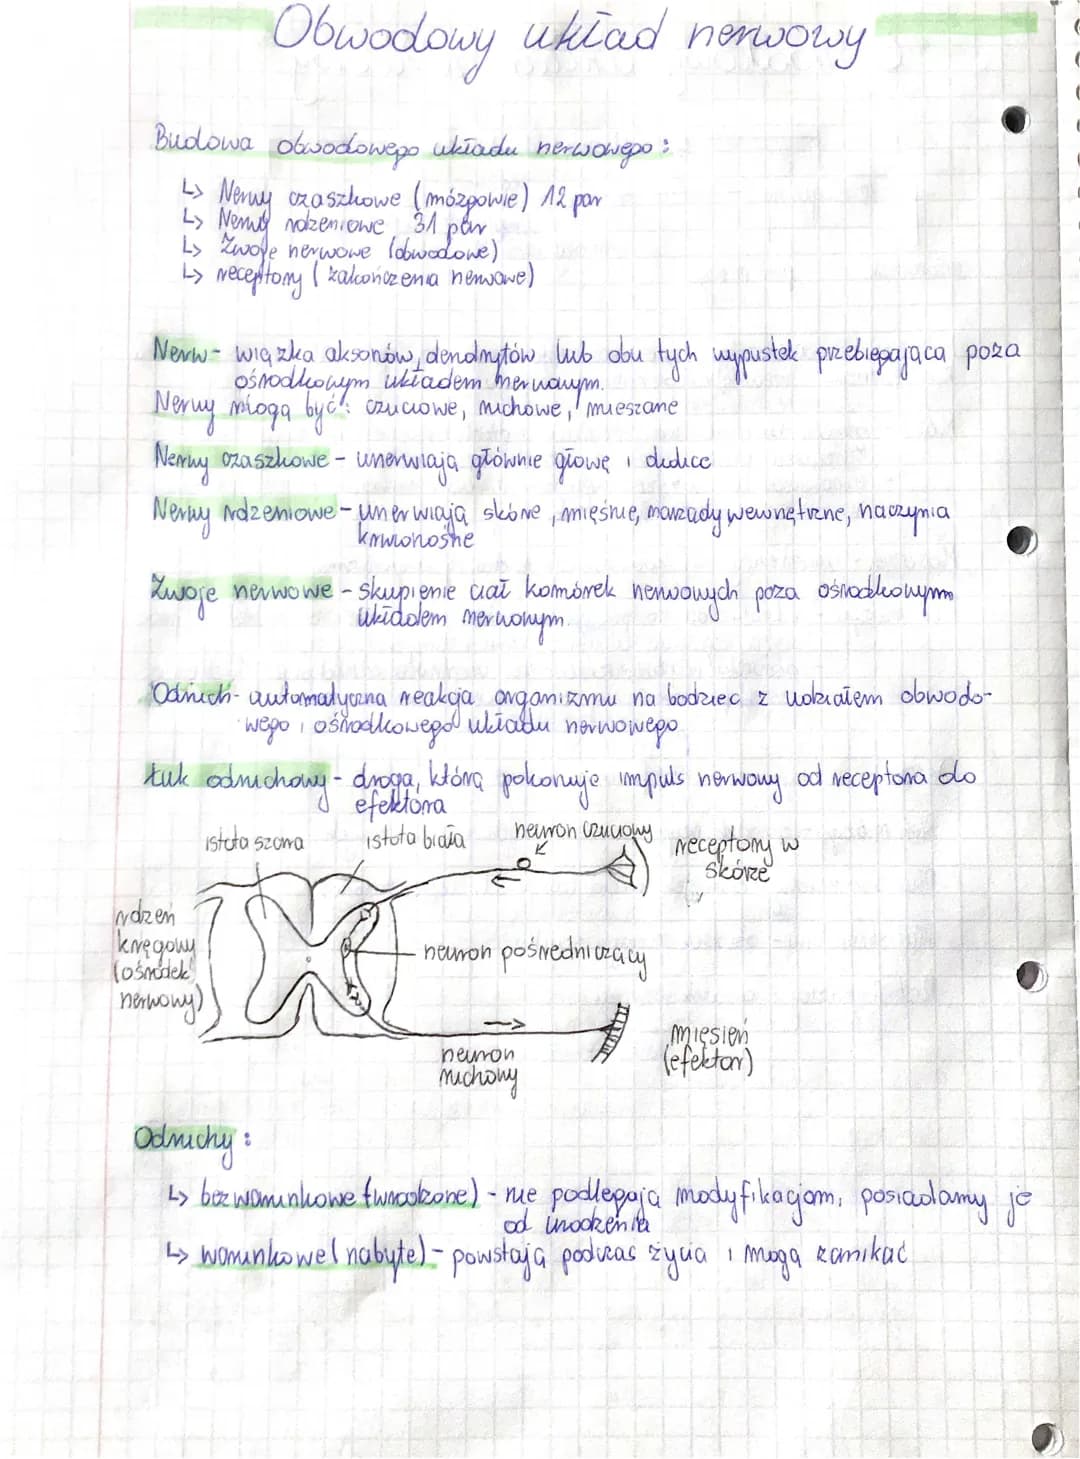 Obwodowy układ nerwowy
Budowa obwodowego układu nerwowego:
↳ Nerwy czaszkowe (mózgowie) 12 par
↳ Nerwy rdzeniowe 31 par
↳ Zwoje nerwowe (obwodowe)
↳ receptory (zakończenia nerwowe)
Nerw - wiązka aksonów, dendrytów lub obu tych wypustek przebiegająca poza
ośrodkowym układem nerwowym.
Nerwy mogą być: czuciowe, ruchowe, mieszane
Nerwy czaszkowe - unerwiają głównie głowę i
Nerwy rdzeniowe - unerwiają skórę, mięśnie, narządy wewnętrzne, naczynia
krwionośne
Zwoje nerwowe - skupienie ciał komórek nerwowych poza ośrodkowym
układem nerwowym.
Odruch - automatyczna reakcja organizmu na bodziec z udziałem obwodo-
wego i ośrodkowego układu nerwowego
Łuk odruchowy - droga, którą pokonuje impuls nerwowy od receptora do
efektora
istota szara istota biała neuron czuciowy
receptory w
skórze
rdzeń
kręgowy
(ośrodek
nerwowy)
neuron pośredniczący
neuron
ruchowy
mięsień
(efektor)
Odruchy:
↳ bezwarunkowe (wrodzone) - nie podlegają modyfikacjom, posiadamy je
od urodzenia
↳ warunkowe (nabyte) - powstają podczas życia i mogą zanikać